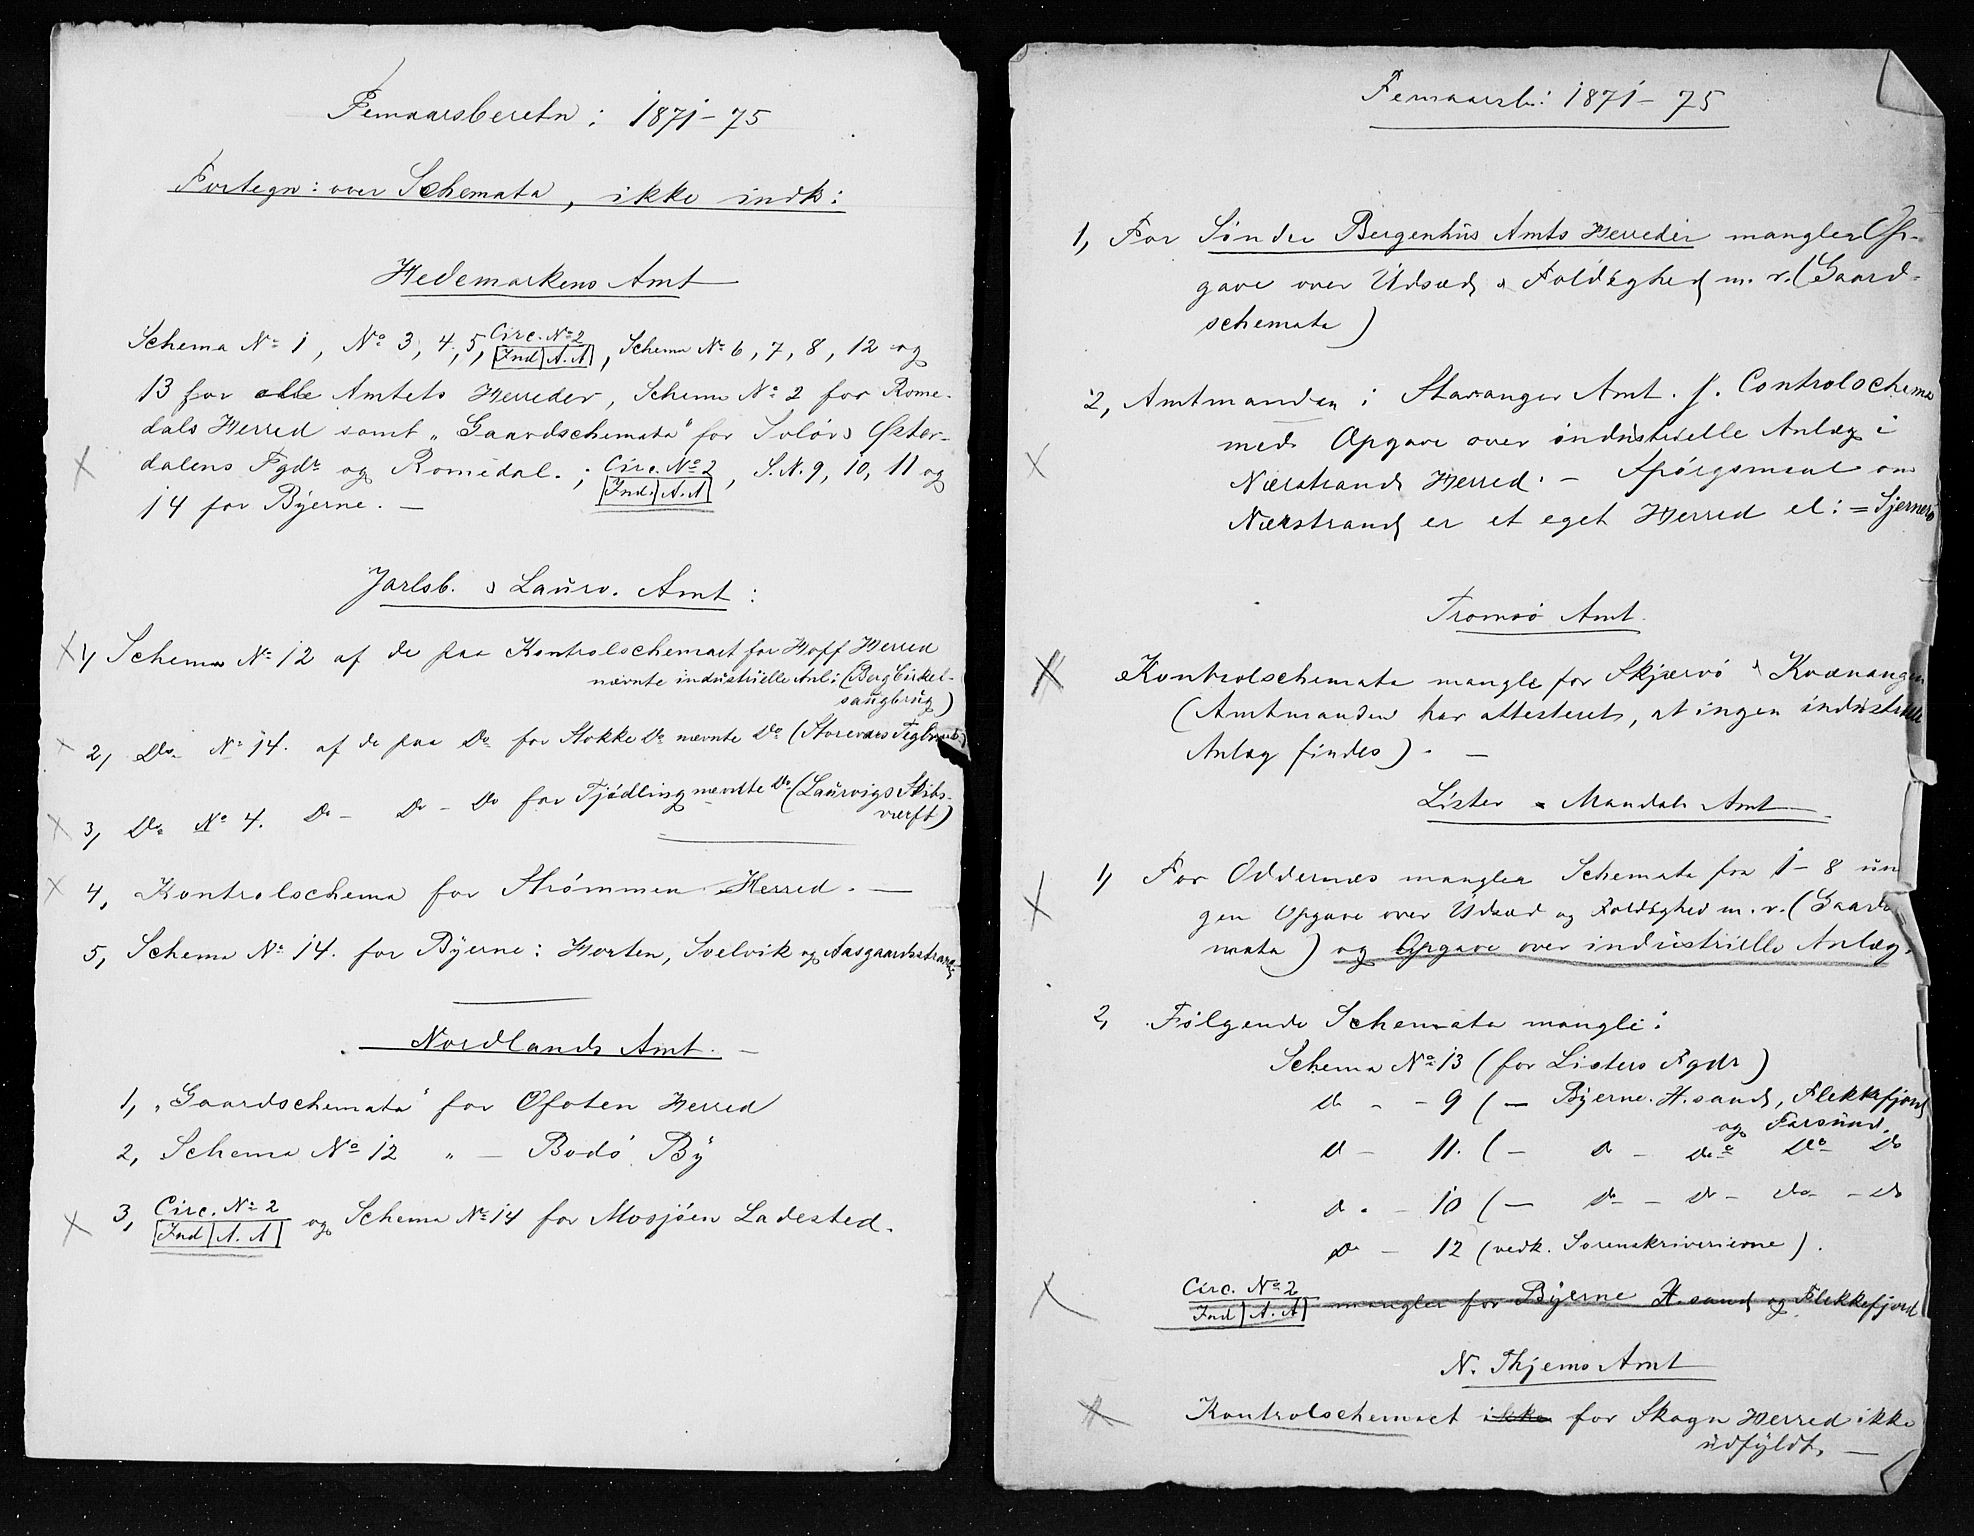 Femaarsberetn: 1871-75
Fortegn: over Schemata, ikke indk:
Hedemarkens Amt
Schema No 1, No 3, 4, 5, Circ. No 2 Ind A.A, Schema No 6, 7, 8, 12 og
13 for alle Amtets Herreder, Schema No 2 for Rome-
dals Herred samt "Gaardschemata" for Solør & Øster-
dalens Fgdr og Romedal. ; Circ. No 2 Ind. A.A, S.N. 9, 10, 11 og
14 for Byerne. —
Jarlsb. & Laurv. Amt:
1, Schema No 12 af de paa Kontrolschemaet for Hoff Herred
nævnte industrielle Anl: (Berg Cirkel-
saugbrug)
2, Do No 14. af de paa Do for Stokke Do nævnte Do (Storevars Teglværk)
3, Do No 4. Do — Do — Do for Tjødling nævnte Do (Laurvigs Skibs-
værft)
4, Kontrolschema for Strømmen Herred. —
5, Schema No 14. for Byerne: Horten, Svelvik og Aasgaardsstrand
Nordlands Amt. —
1, "Gaardschemata" for Ofoten Herred
2, Schema No 12 " — Bodø By
3, Circ. No 2 Ind A.A og Schema No 14 for Mosjøen Ladested.
Femaarsb: 1871-75
1, For Søndre Bergenhus Amts Herreder mangler Op-
gave over Udsæd & Foldighed m. v. (Gaard-
schemata)
2, Amtmanden i Stavanger Amt. f. Controlschema
med Opgave over industrielle Anlæg i
Nærstrand Herred. — Spørgsmaal om
Nærstrand er et eget Herred el: = Sjernerø
Tromsø Amt.
Kontrolschemata mangle for Skjærvø & Kvænangen
(Amtmanden har attesteret, at ingen industrielle
Anlæg findes). —
Lister & Mandals Amt
1, For Oddernæs mangler Schemata fra 1-8 in
gen Opgave over Udsæd og Foldighed m. v. (Gaards
mata) og Opgave over industrielle Anlæg.
2, Følgende Schemata mangle:
Schema No 13 (for Listers Fgdr)
do - - 9 (— Byerne H.sand, Flekkefjord
og Farsund.
do - 11. (— do — do Do Do
do. - 10 (— do — do — do — do
do — 12 (vedk. Sorenskriverierne).
Circ. No 2 Ind A.A mangler for Byerne H.sand og Flekkefjord
N. Thjems Amt
Kontrolschemaet ikke for Skogn Herred ikke
udfyldt. —